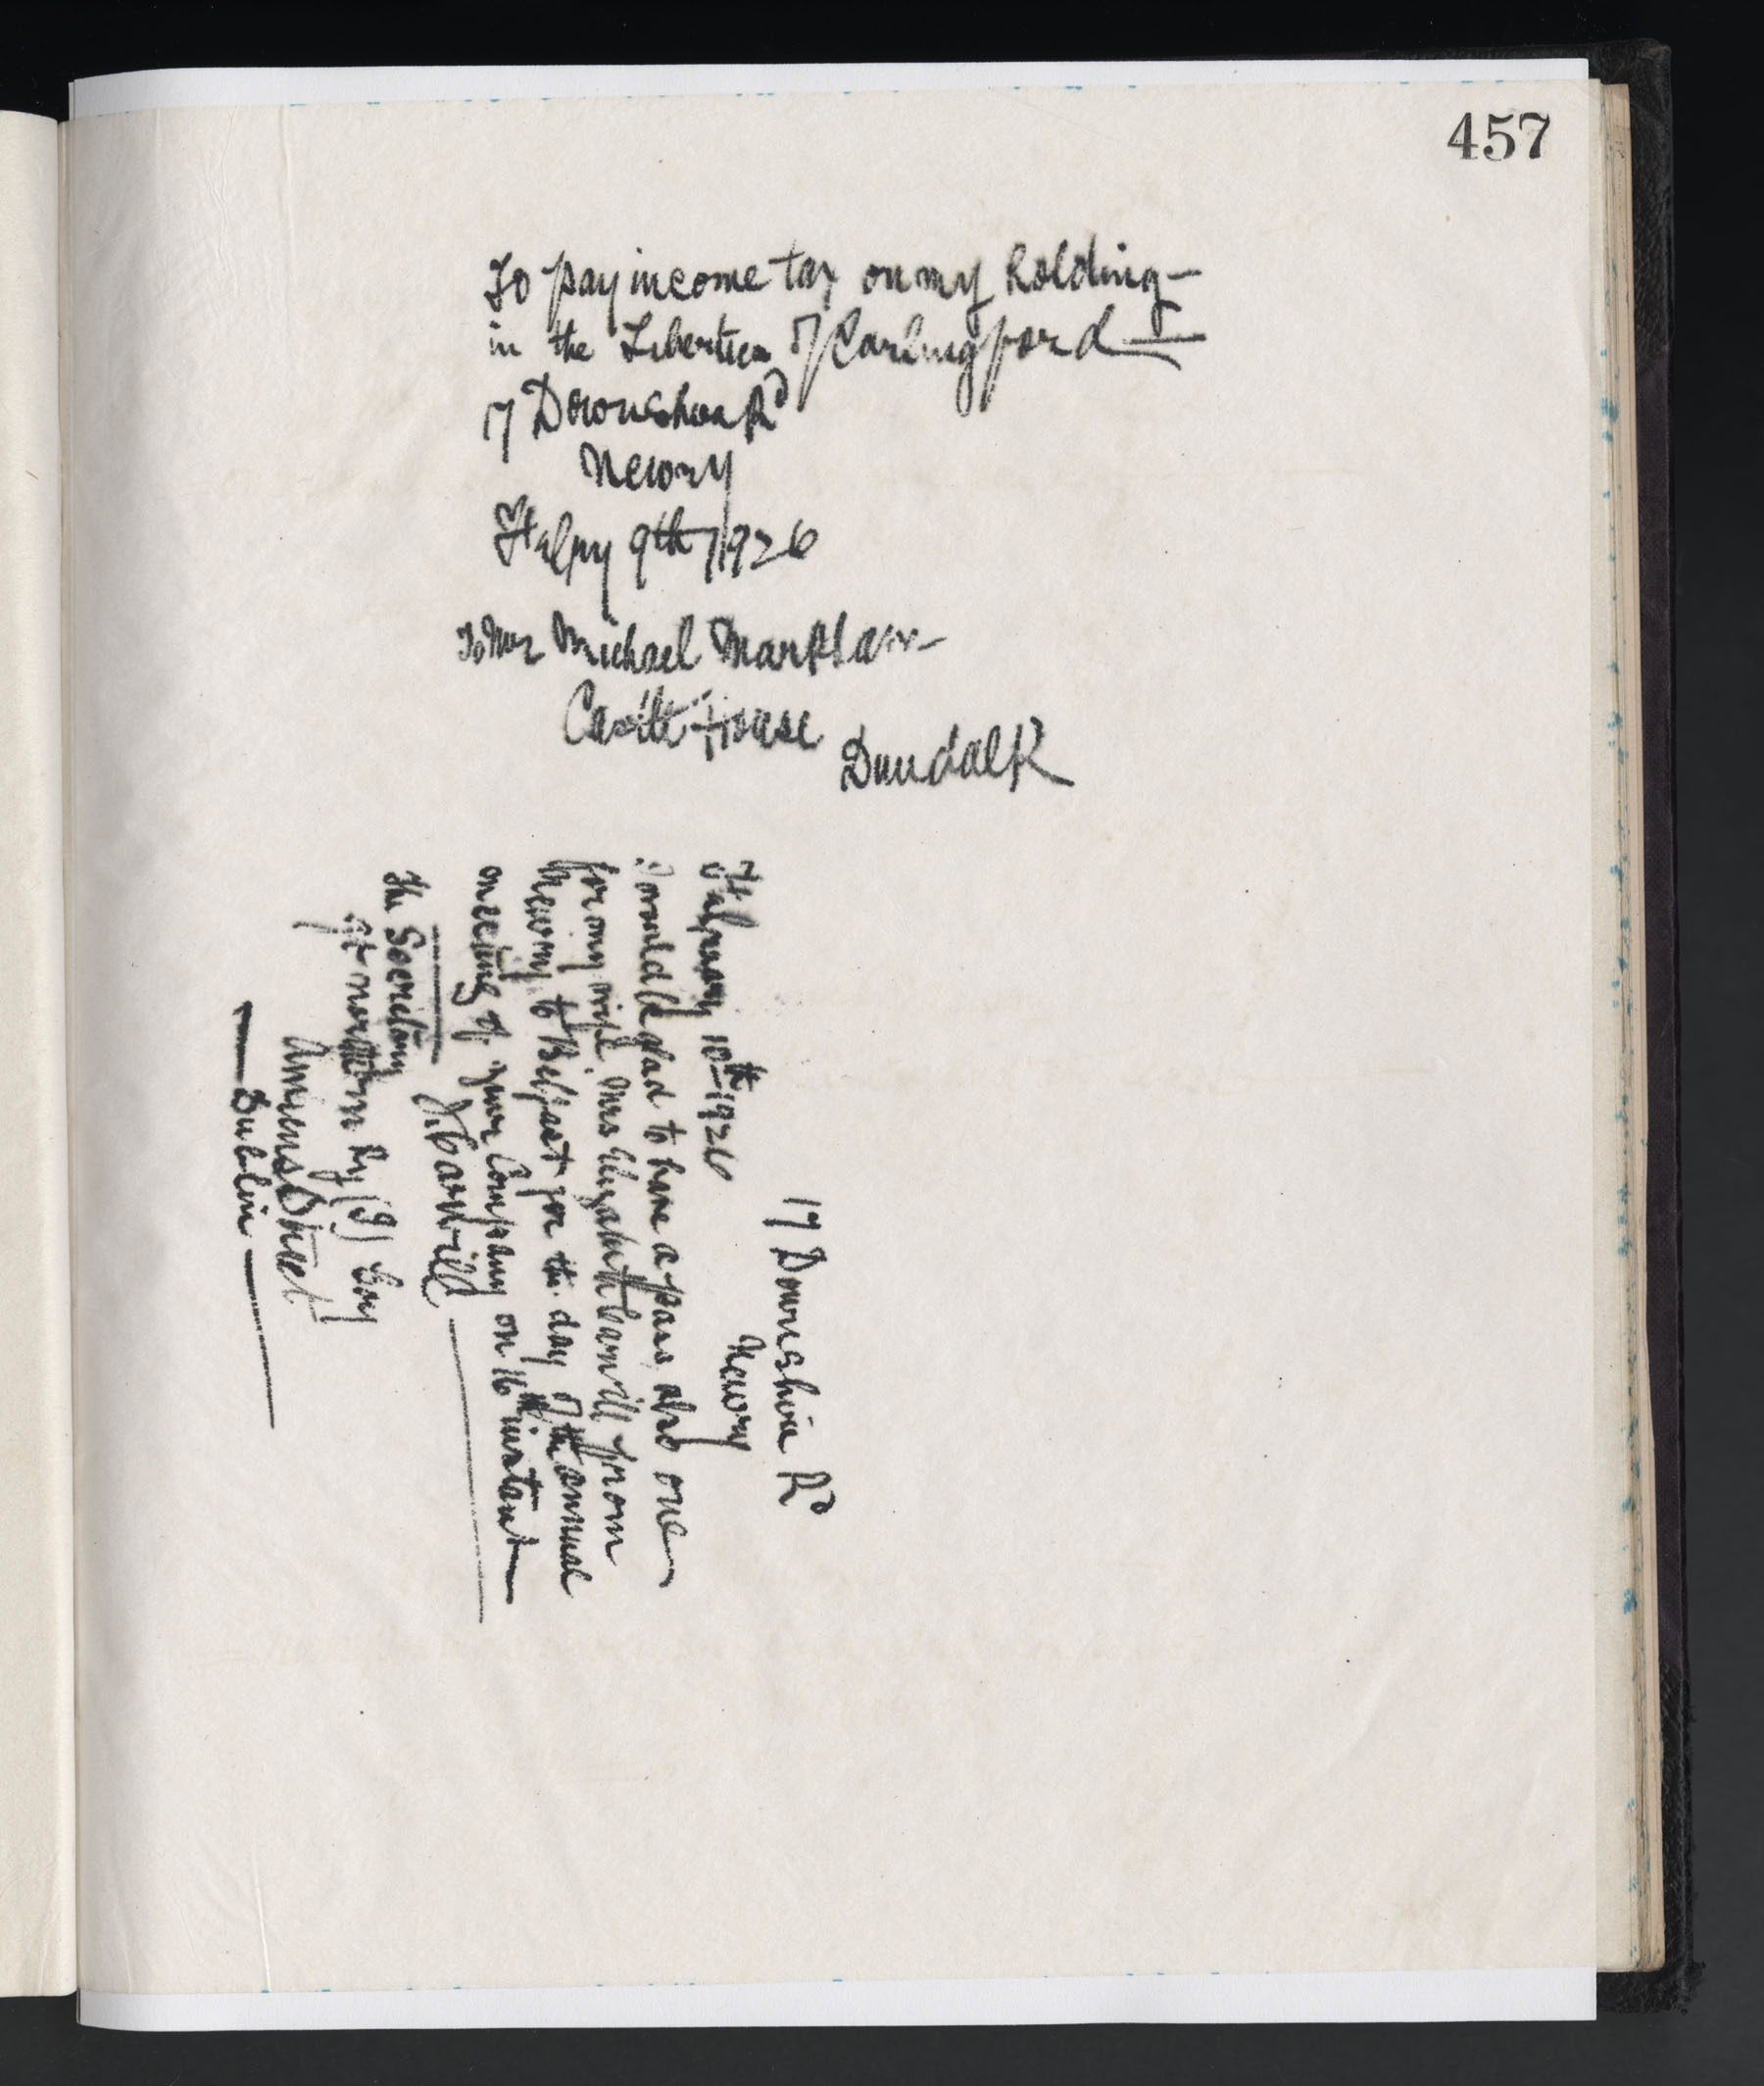 457
To pay income tax on my holding—
in the Liberties of Carlingford—
17 Downshire Rd
Newry
Febry 9th/1926
To Mr Michael
Castle House
Dundalk
17 Downshire Rd
Newry
February 10th 1926
I would be glad to have a pass, also one
for my wife, Mrs Elizabeth Carvill from
Newry to Belfast for the day of the annual
meeting of your Company on 16th instant—
J. Carvill
The Secretary
Gt northern Ry (I) Coy
Amiens Street
Dublin